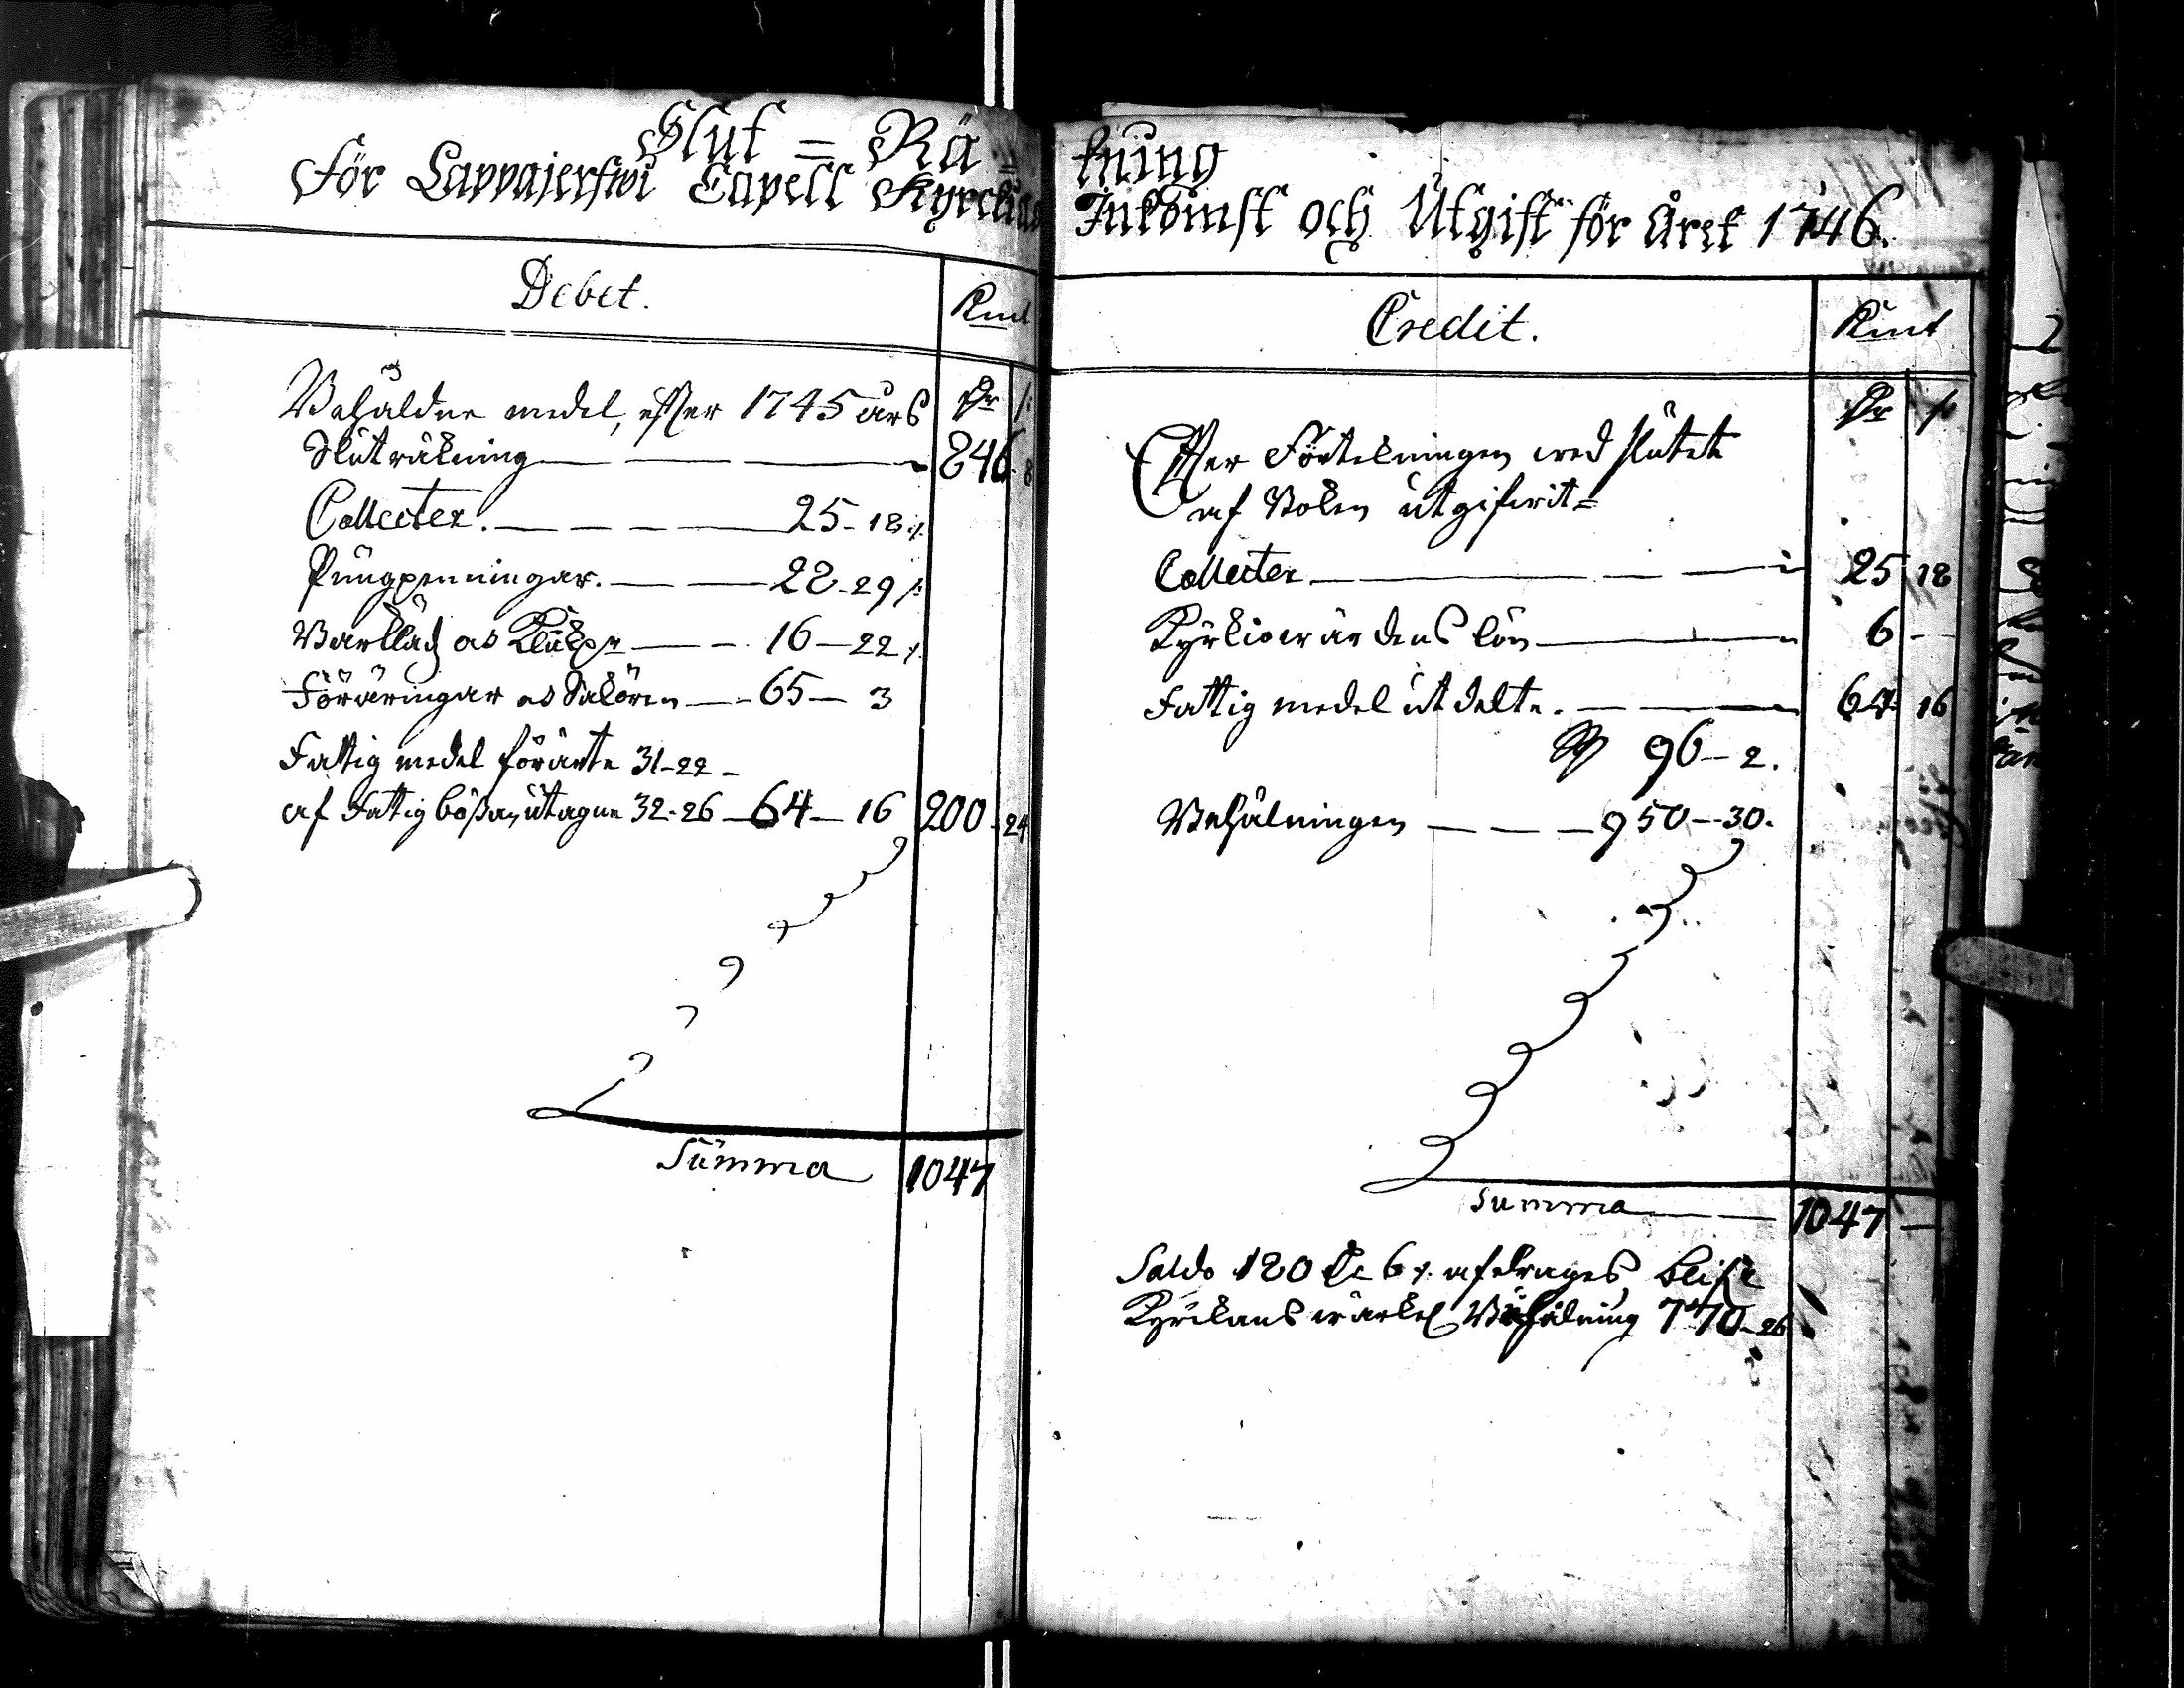 Slut = Räkning
För Lappajerfwi Capell Kyrckias Inkomst och Utgift för Året 1746.
Debet.
Kmt
Behåldne medel, efter 1745 års
Slüträkning 846. 8
Collecter. 25 - 18
Püngpenningar. 28 - 29
16 - 22
Föräringar 65 - 3
Fattig medel förärte 31 - 22 -
af Fattigbößan uttagne 32 - 26 - 64 - 16 200 - 24
Summa 1047
Credit.
Kmt
Efter Förtekningen wed slütet
af Boken utgifwit =
Collecter 25 18
Kyrkiowärdens lön 6 -
Fattig medel utdelte. 64 16
96 - 2.
Behålningen 950 - 30.
Summa 1047 -
Saldo 180 6 afdrages blifr
Kyrckans Behålning 770 - 26